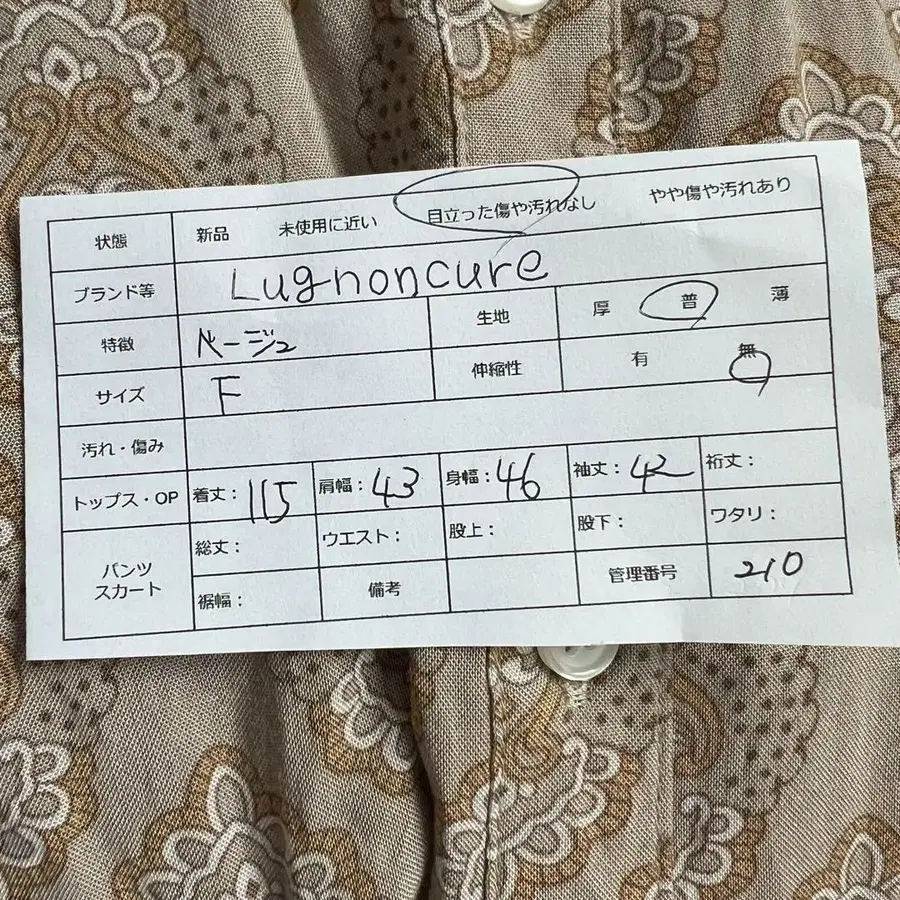 状態 新品 未使用に近い 目立った傷や汚れなし やや傷や汚れあり
ブランド等 Lugnoncure
特徴 ベージュ 生地 厚 普 薄
サイズ F 伸縮性 有 無
汚れ・傷み
トップス・OP 着丈: 115 肩幅: 43 身幅: 46 袖丈: 42 裄丈:
パンツ スカート
総丈: ウエスト: 股上: 股下: ワタリ:
裾幅: 備考 管理番号 210